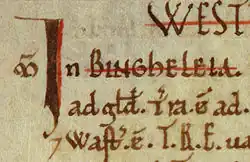 WEST
In BINGHELEIA.
ad gld̄. T̄ra. ē ad
⁊ Wast' ē. T. R. E. u